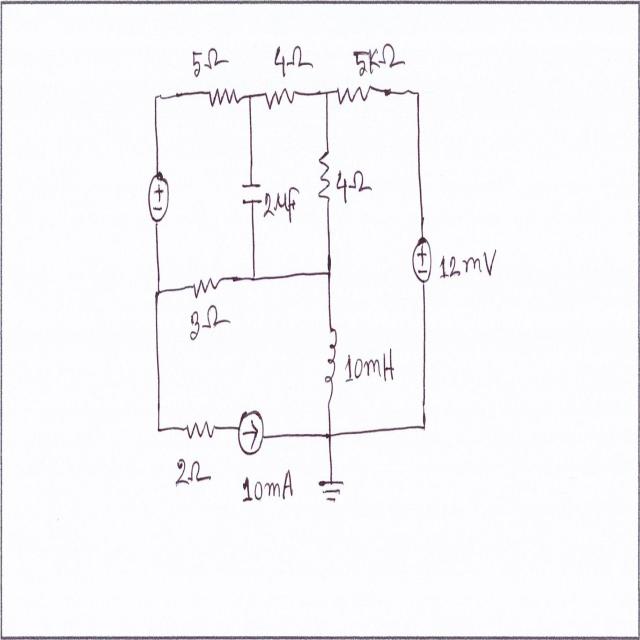 5Ω 4Ω 5KΩ
2μF 4Ω
12mV
3Ω
10mH
2Ω
10mA